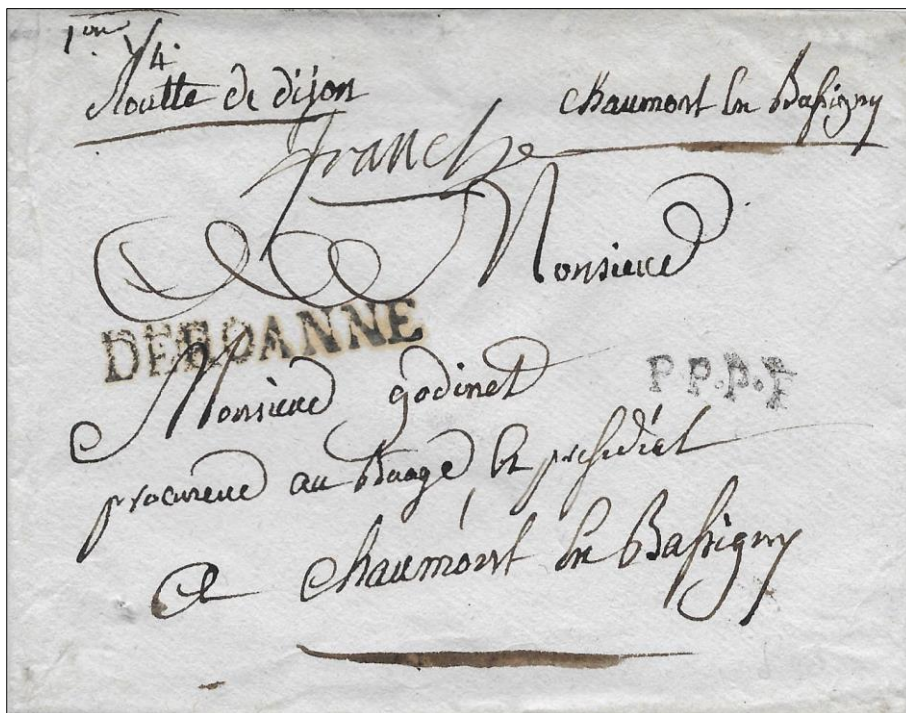 1on 1/4.
Routte de dijon
chaumont En Bassigny
franche
Monsieur
DEROANNE
P.P.D.F
Monsieur godinet
procureur au Baage Et presidial
a chaumont En Bassigny